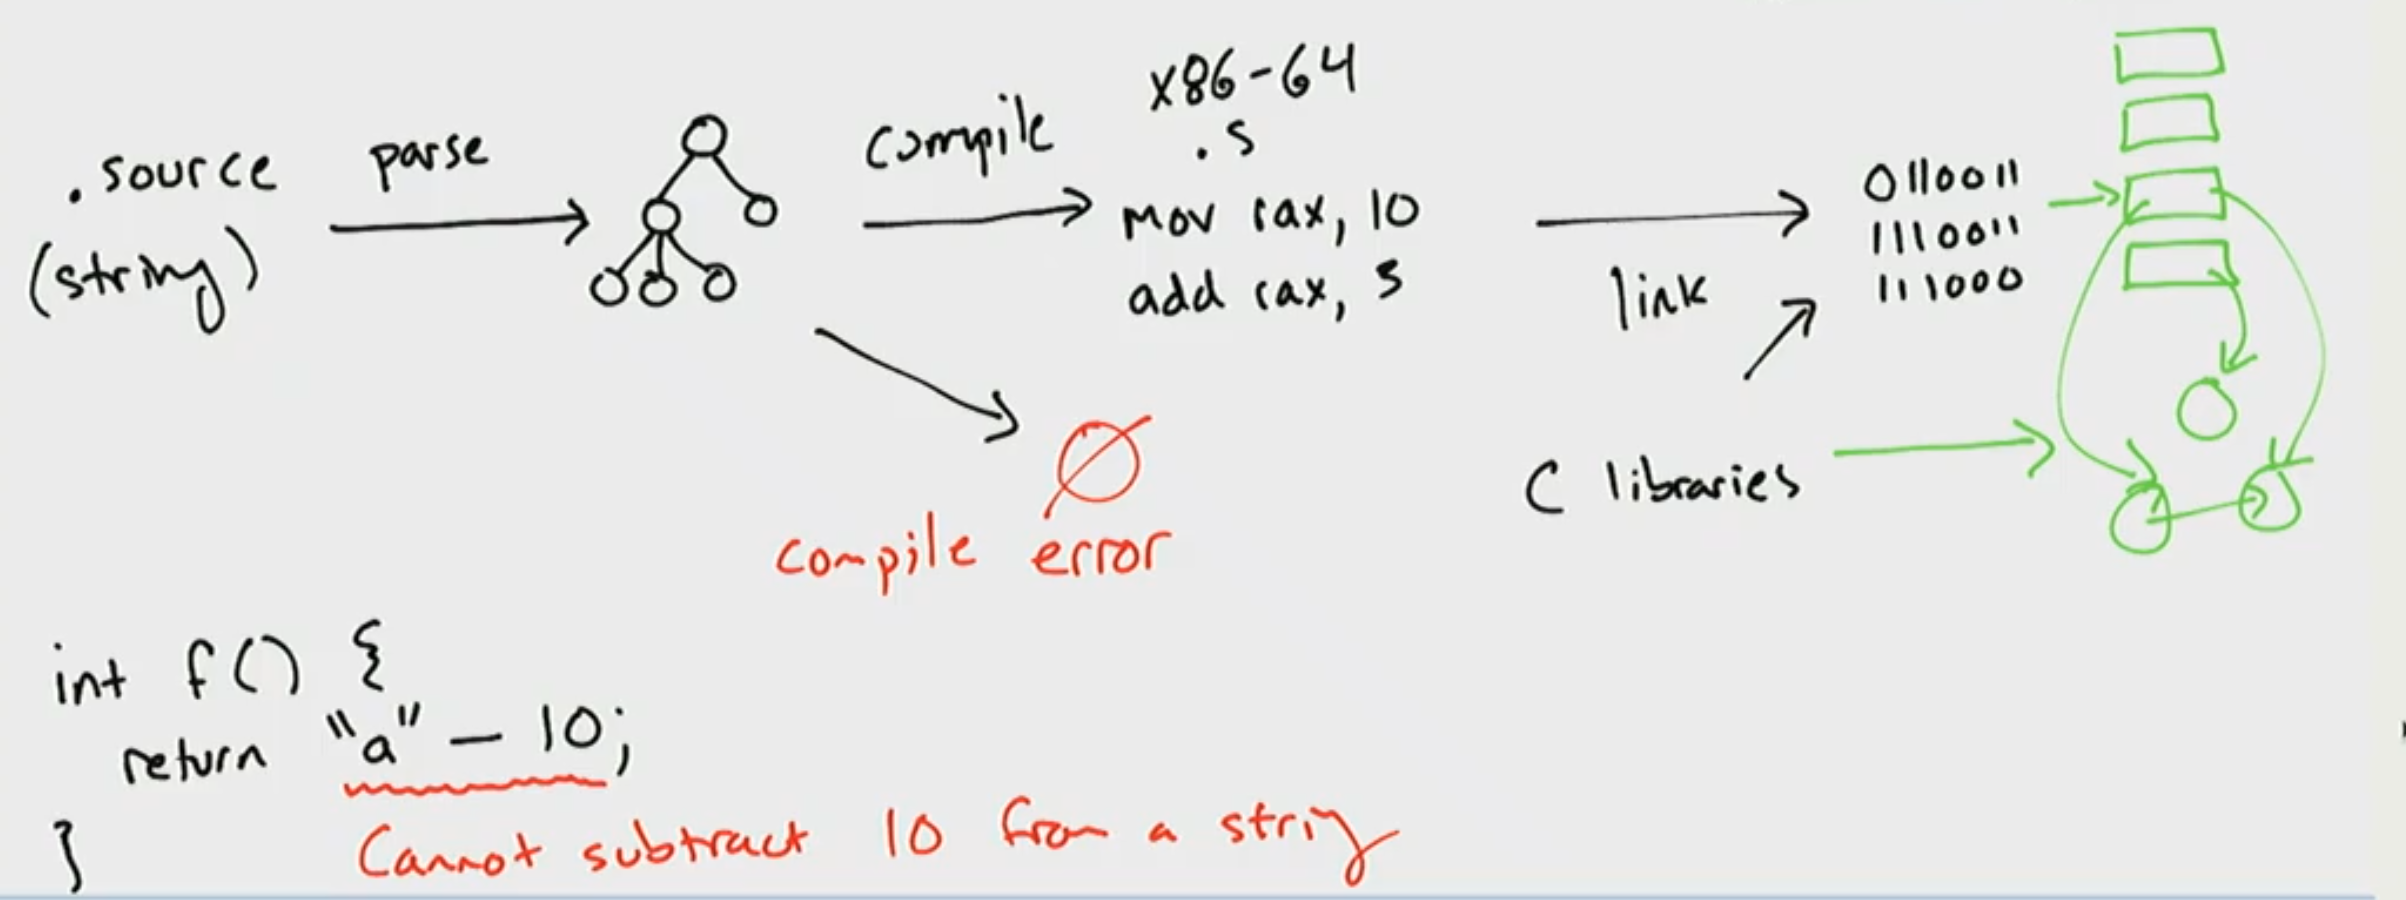 .source
(string)
parse
compile
x86-64
.s
mov rax, 10
add rax, 5
link
0110011
1110011
111000
C libraries
compile error
int f() {
return "a" - 10;
}
Cannot subtract 10 from a string